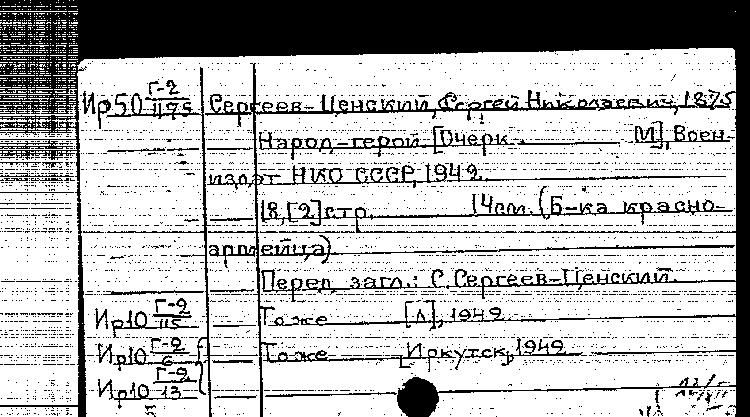 Ир50 Г-2/1175 Сергеев-Ценский, Сергей Николаевич, 1875
Народ-герой. [Очерк. М], Воен-
издат НКО СССР, 1942.
18,[2]стр. 14см. (Б-ка красно-
армейца)
Перед загл.: С. Сергеев-Ценский.
Ир10 Г-2/115 То же [Л], 1942
Ир10 Г-2 То же [Иркутск, 1942
Ир10 Г-2/13